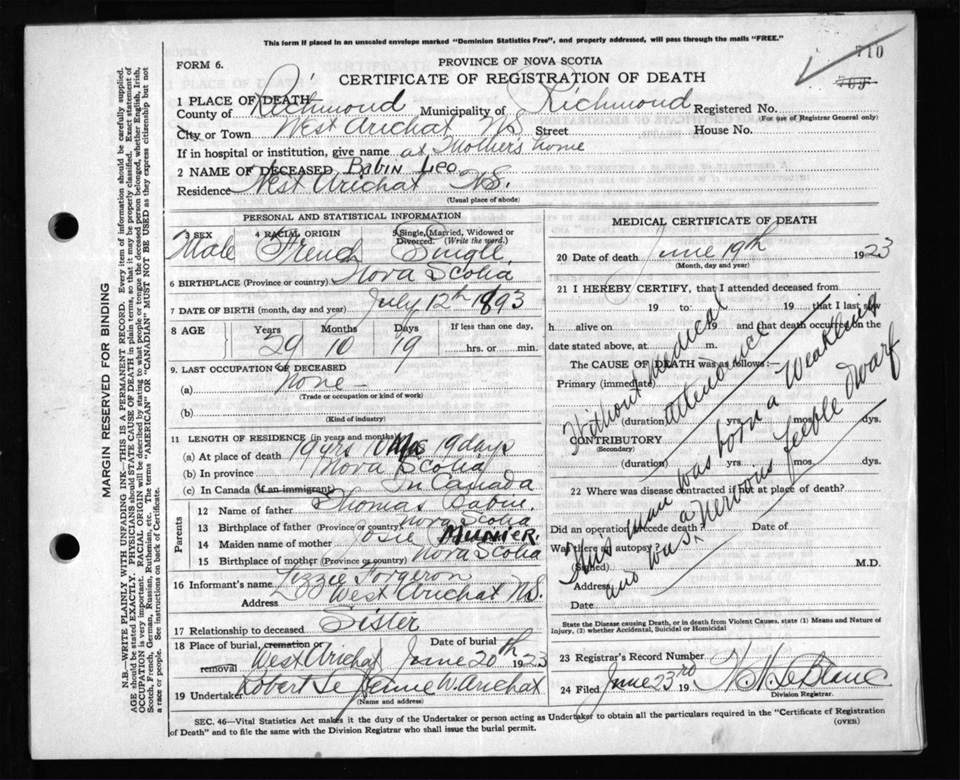 This form if placed in an unsealed envelope marked "Dominion Statistics Free", and properly addressed, will pass through the mails "FREE."
710
709
FORM 6.
PROVINCE OF NOVA SCOTIA
CERTIFICATE OF REGISTRATION OF DEATH
1 PLACE OF DEATH
County of Richmond Municipality of Richmond Registered No.
(For use of Registrar General only)
City or Town West Arichat N.S. Street House No.
If in hospital or institution, give name at Mothers home
2 NAME OF DECEASED Babin Leo
Residence West Arichat N.S.
(Usual place of abode)
PERSONAL AND STATISTICAL INFORMATION
3 SEX 4 RACIAL ORIGIN 5 Single, Married, Widowed or Divorced. (Write the word.)
Male French Single
6 BIRTHPLACE (Province or country) Nova Scotia
7 DATE OF BIRTH (month, day and year) July 12th 1893
8 AGE Years Months Days If less than one day,
29 10 19 hrs. or min.
9. LAST OCCUPATION OF DECEASED
(a) None
(Trade or occupation or kind of work)
(b)
(Kind of industry)
11 LENGTH OF RESIDENCE (in years and months)
(a) At place of death 19 yrs 10 Ms 19 days
(b) In province Nova Scotia
(c) In Canada (if an immigrant) In Canada
Parents
12 Name of father Thomas Babin
13 Birthplace of father (Province or country) Nova Scotia
14 Maiden name of mother Josie
15 Birthplace of mother (Province or country) Nova Scotia
16 Informant's name Lizzie Forgeron
Address West Arichat N.S.
17 Relationship to deceased Sister
18 Place of burial, cremation or removal West Arichat Date of burial June 20th 1923
19 Undertaker Robert W. Arichat
(Name and address)
MEDICAL CERTIFICATE OF DEATH
20 Date of death June 19th 1923
(Month, day and year)
21 I HEREBY CERTIFY, that I attended deceased from
19 to 19 that I last saw
h alive on 19 and that death occurred on the
date stated above, at m.
The CAUSE OF DEATH was as follows:
Primary (immediate)
(duration) yrs. mos. dys.
CONTRIBUTORY
(Secondary)
(duration) yrs. mos. dys.
Without medical
attendance
This man was born a Weakling
and was a nervous feeble dwarf
22 Where was disease contracted if not at place of death?
Did an operation precede death? Date of
Was there an autopsy?
(Signed) M.D.
Address
Date
State the Disease causing Death, or in death from Violent Causes, state (1) Means and Nature of
Injury, (2) whether Accidental, Suicidal or Homicidal
23 Registrar's Record Number
24 Filed June 23rd 19 LeBlanc
Division Registrar.
SEC. 46—Vital Statistics Act makes it the duty of the Undertaker or person acting as Undertaker to obtain all the particulars required in the "Certificate of Registration
of Death" and to file the same with the Division Registrar who shall issue the burial permit.
(OVER)
MARGIN RESERVED FOR BINDING
N.B.—WRITE PLAINLY WITH UNFADING INK—THIS IS A PERMANENT RECORD. Every item of information should be carefully supplied.
AGE should be stated EXACTLY. PHYSICIANS should STATE CAUSE OF DEATH in plain terms, so that it may be properly classified. Exact statement of
OCCUPATION is very important. RACIAL ORIGIN will be described by stating to what people or tongue the deceased person belonged, whether English, Irish,
Scotch, French, German, Russian, Ruthenian, etc. The terms "AMERICAN" OR "CANADIAN" MUST NOT BE USED as they express citizenship but not
a race or people. See instructions on back of Certificate.